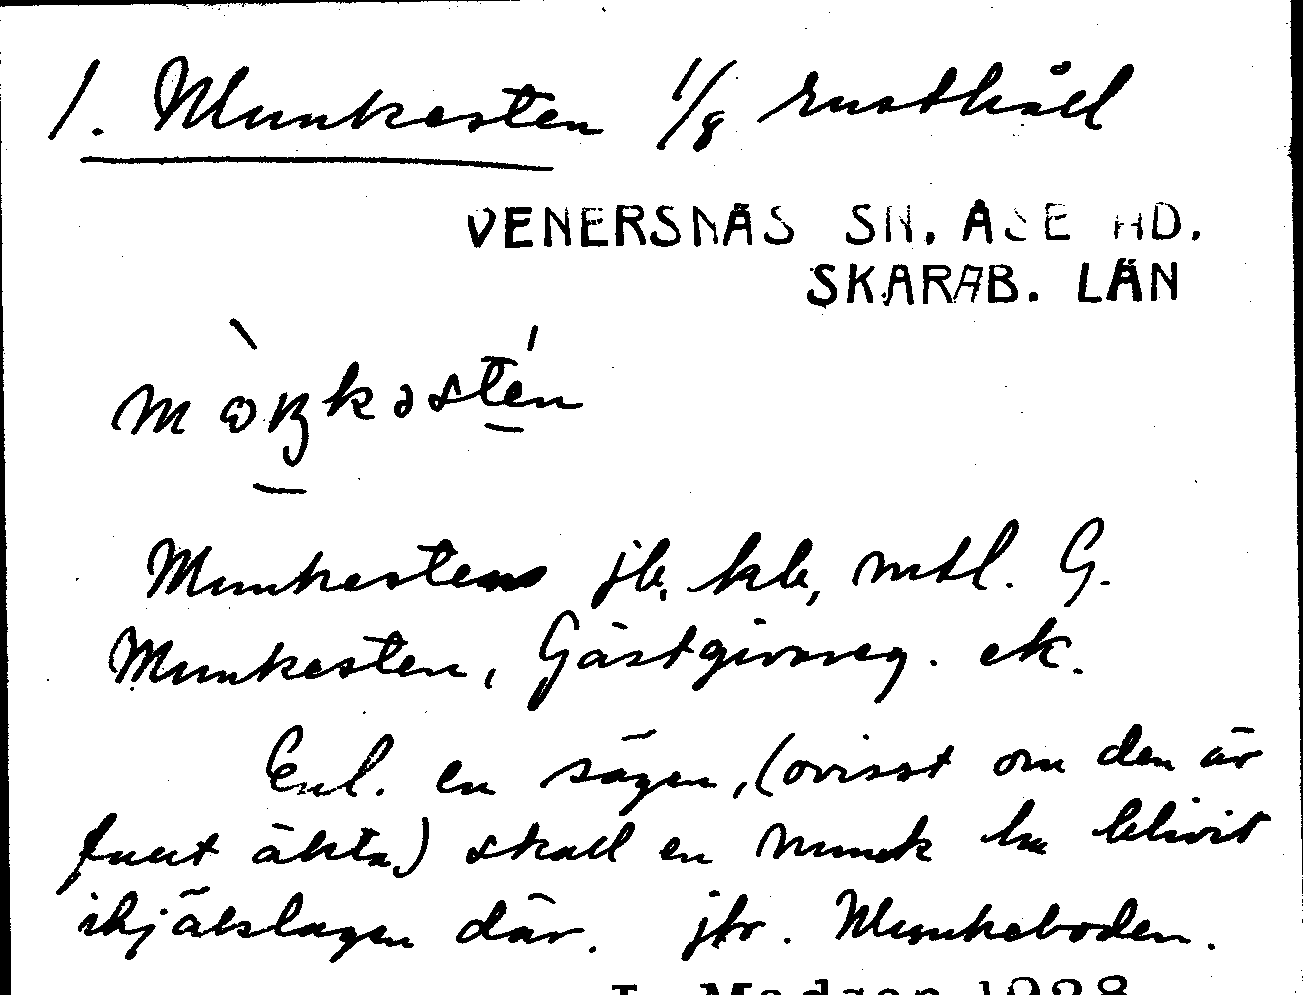 1. Munkesten 1/8 rusthåll
VENERSNÄS SN. ÅSE HD.
SKARAB. LÄN
Munkesten jb. kb, mtl. G.
Munkesten, Gästgivareg. ek.
Enl. en sägen, (ovisst om den är
fullt äkta) skall en munk ha blivit
ihjälslagen där. jfr. Munkeboden.